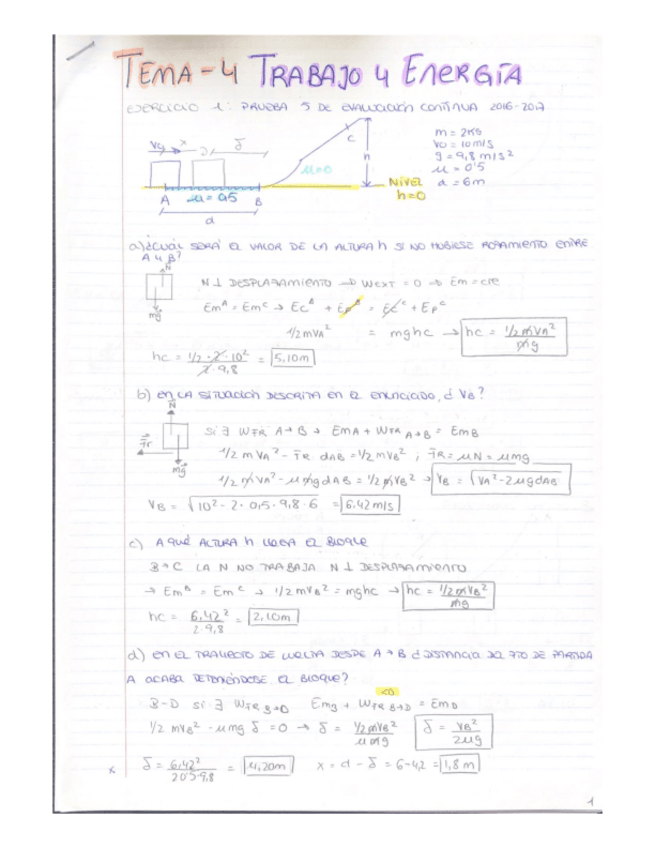 TEMA-4 TRABAJO Y ENERGÍA
EJERCICIO 1: PRUEBA 5 DE EVALUACIÓN CONTINUA 2016-2017
m = 2KG
V0 = 10m/s
g = 9,8 m/s²
μ = 0'5
d = 6m
V0 x D δ
C
h
μ=0
NIVEL h=0
A μ=0,5 B
d
a) ¿CUÁL SERÁ EL VALOR DE LA ALTURA h SI NO HUBIESE ROZAMIENTO ENTRE
A Y B?
N
N ⊥ DESPLAZAMIENTO → WEXT = 0 → Em = cte
mg
EmA = EmC → EcA + EpA = EcC + EpC
1/2 mVA² = mghc → hc = 1/2 mVA² / mg
hc = 1/2 · 2 · 10² / 2 · 9,8 = 5,10m
b) EN LA SITUACIÓN DESCRITA EN EL ENUNCIADO, ¿ VB?
N
Fr
mg
SI ∃ WFR A→B → EmA + WFR A→B = EmB
1/2 mVA² - FR dAB = 1/2 mVB² ; FR = μN = μmg
1/2 mVA² - μmg dAB = 1/2 mVB² → VB = √VA² - 2μgdAB
VB = √10² - 2 · 0,5 · 9,8 · 6 = 6,42 m/s
c) A QUÉ ALTURA h LLEGA EL BLOQUE
B→C LA N NO TRABAJA N ⊥ DESPLAZAMIENTO
→ EmB = EmC → 1/2 mVB² = mghc → hc = 1/2 mVB² / mg
hc = 6,42² / 2·9,8 = 2,10m
d) EN EL TRAYECTO DE VUELTA DESDE A→B ¿ DISTANCIA DEL PTO DE PARTIDA
A ACABA DETENIÉNDOSE EL BLOQUE?
<0
B-D SI ∃ WFR B→D EmB + WFR B→D = EmD
1/2 mVB² - μmg δ = 0 → δ = 1/2 mVB² / μmg δ = VB² / 2μg
x δ = 6,42² / 2·0'5·9,8 = 4,20m x = d - δ = 6-4,2 = 1,8 m
1